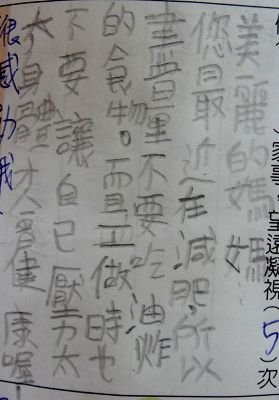 家事，望遠凝視(5)次
美麗的媽媽
您最近在減肥，所以
盡量不要吃油炸
的食物。而且工做時也
不要讓自己壓力太
大身體才會健康喔！
很感動